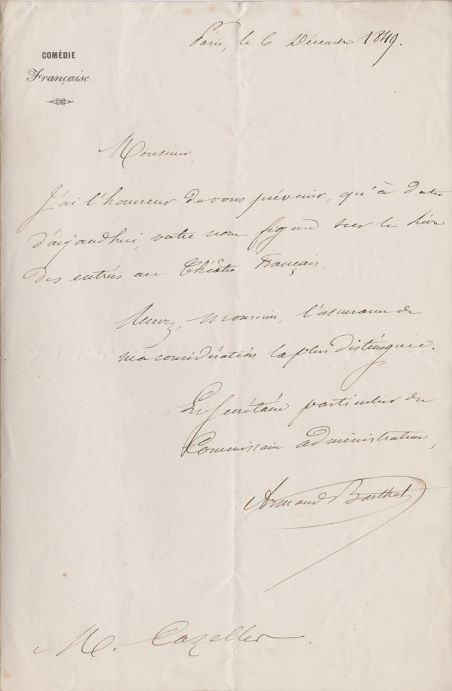 Paris, le 6 Décembre 1849.
COMÉDIE
Française.
Monsieur,
J'ai l'honneur de vous prévenir, qu'à dater
d'aujourd'hui, votre nom figure sur le livre
des entrées au Théâtre Français.
Recevez, Monsieur, l'assurance de
ma considération la plus distinguée.
Le Secrétaire particulier du
Commissaire administrateur,
Armand Barthet
M.